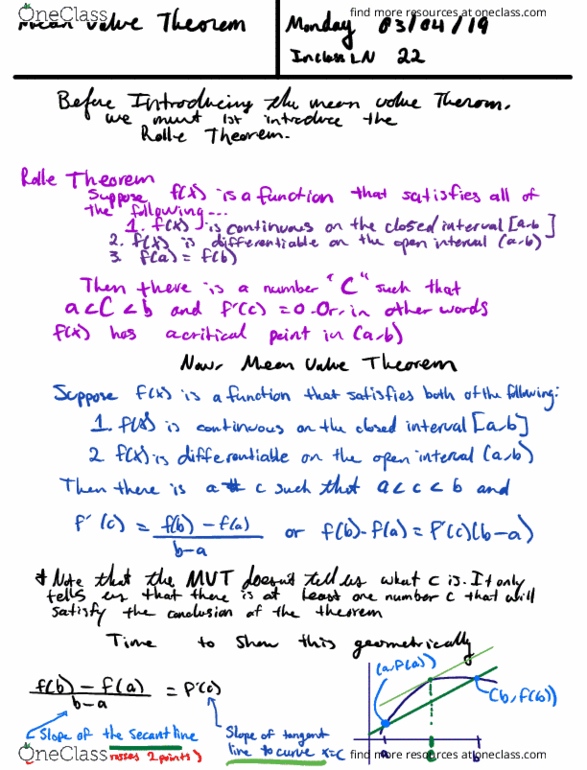 OneClass
find more resources at oneclass.com
Mean Value Theorem
Monday 03/04/19
Inclass LN 22
Before Introducing the mean value Therom,
we must 1st introduce the
Rolle Theorem.
Rolle Theorem
Suppose f(x) is a function that satisfies all of
the following...
1. f(x) is continuous on the closed interval [a,b]
2. f(x) is differentiable on the open interval (a,b)
3. f(a) = f(b)
Then there is a number "C" such that
a<C<b and f'(c) = 0. Or, in other words
f(x) has a critical point in (a,b)
Now, Mean Value Theorem
Suppose f(x) is a function that satisfies both of the following:
1. f(x) is continuous on the closed interval [a,b]
2. f(x) is differentiable on the open interval (a,b)
Then there is a # c such that a<c<b and
f'(c) = f(b) - f(a) / b-a or f(b)-f(a) = f'(c)(b-a)
* Note that the MVT doesn't tell us what c is. It only
tells us that there is at least one number c that will
satisfy the conclusion of the theorem
Time to show this geometrically
(a, f(a))
f(b) - f(a) / b-a = f'(c)
(b, f(b))
Slope of the secant line
Slope of tangent
(crosses 2 points)
line to curve x=c
a c b
OneClass
find more resources at oneclass.com